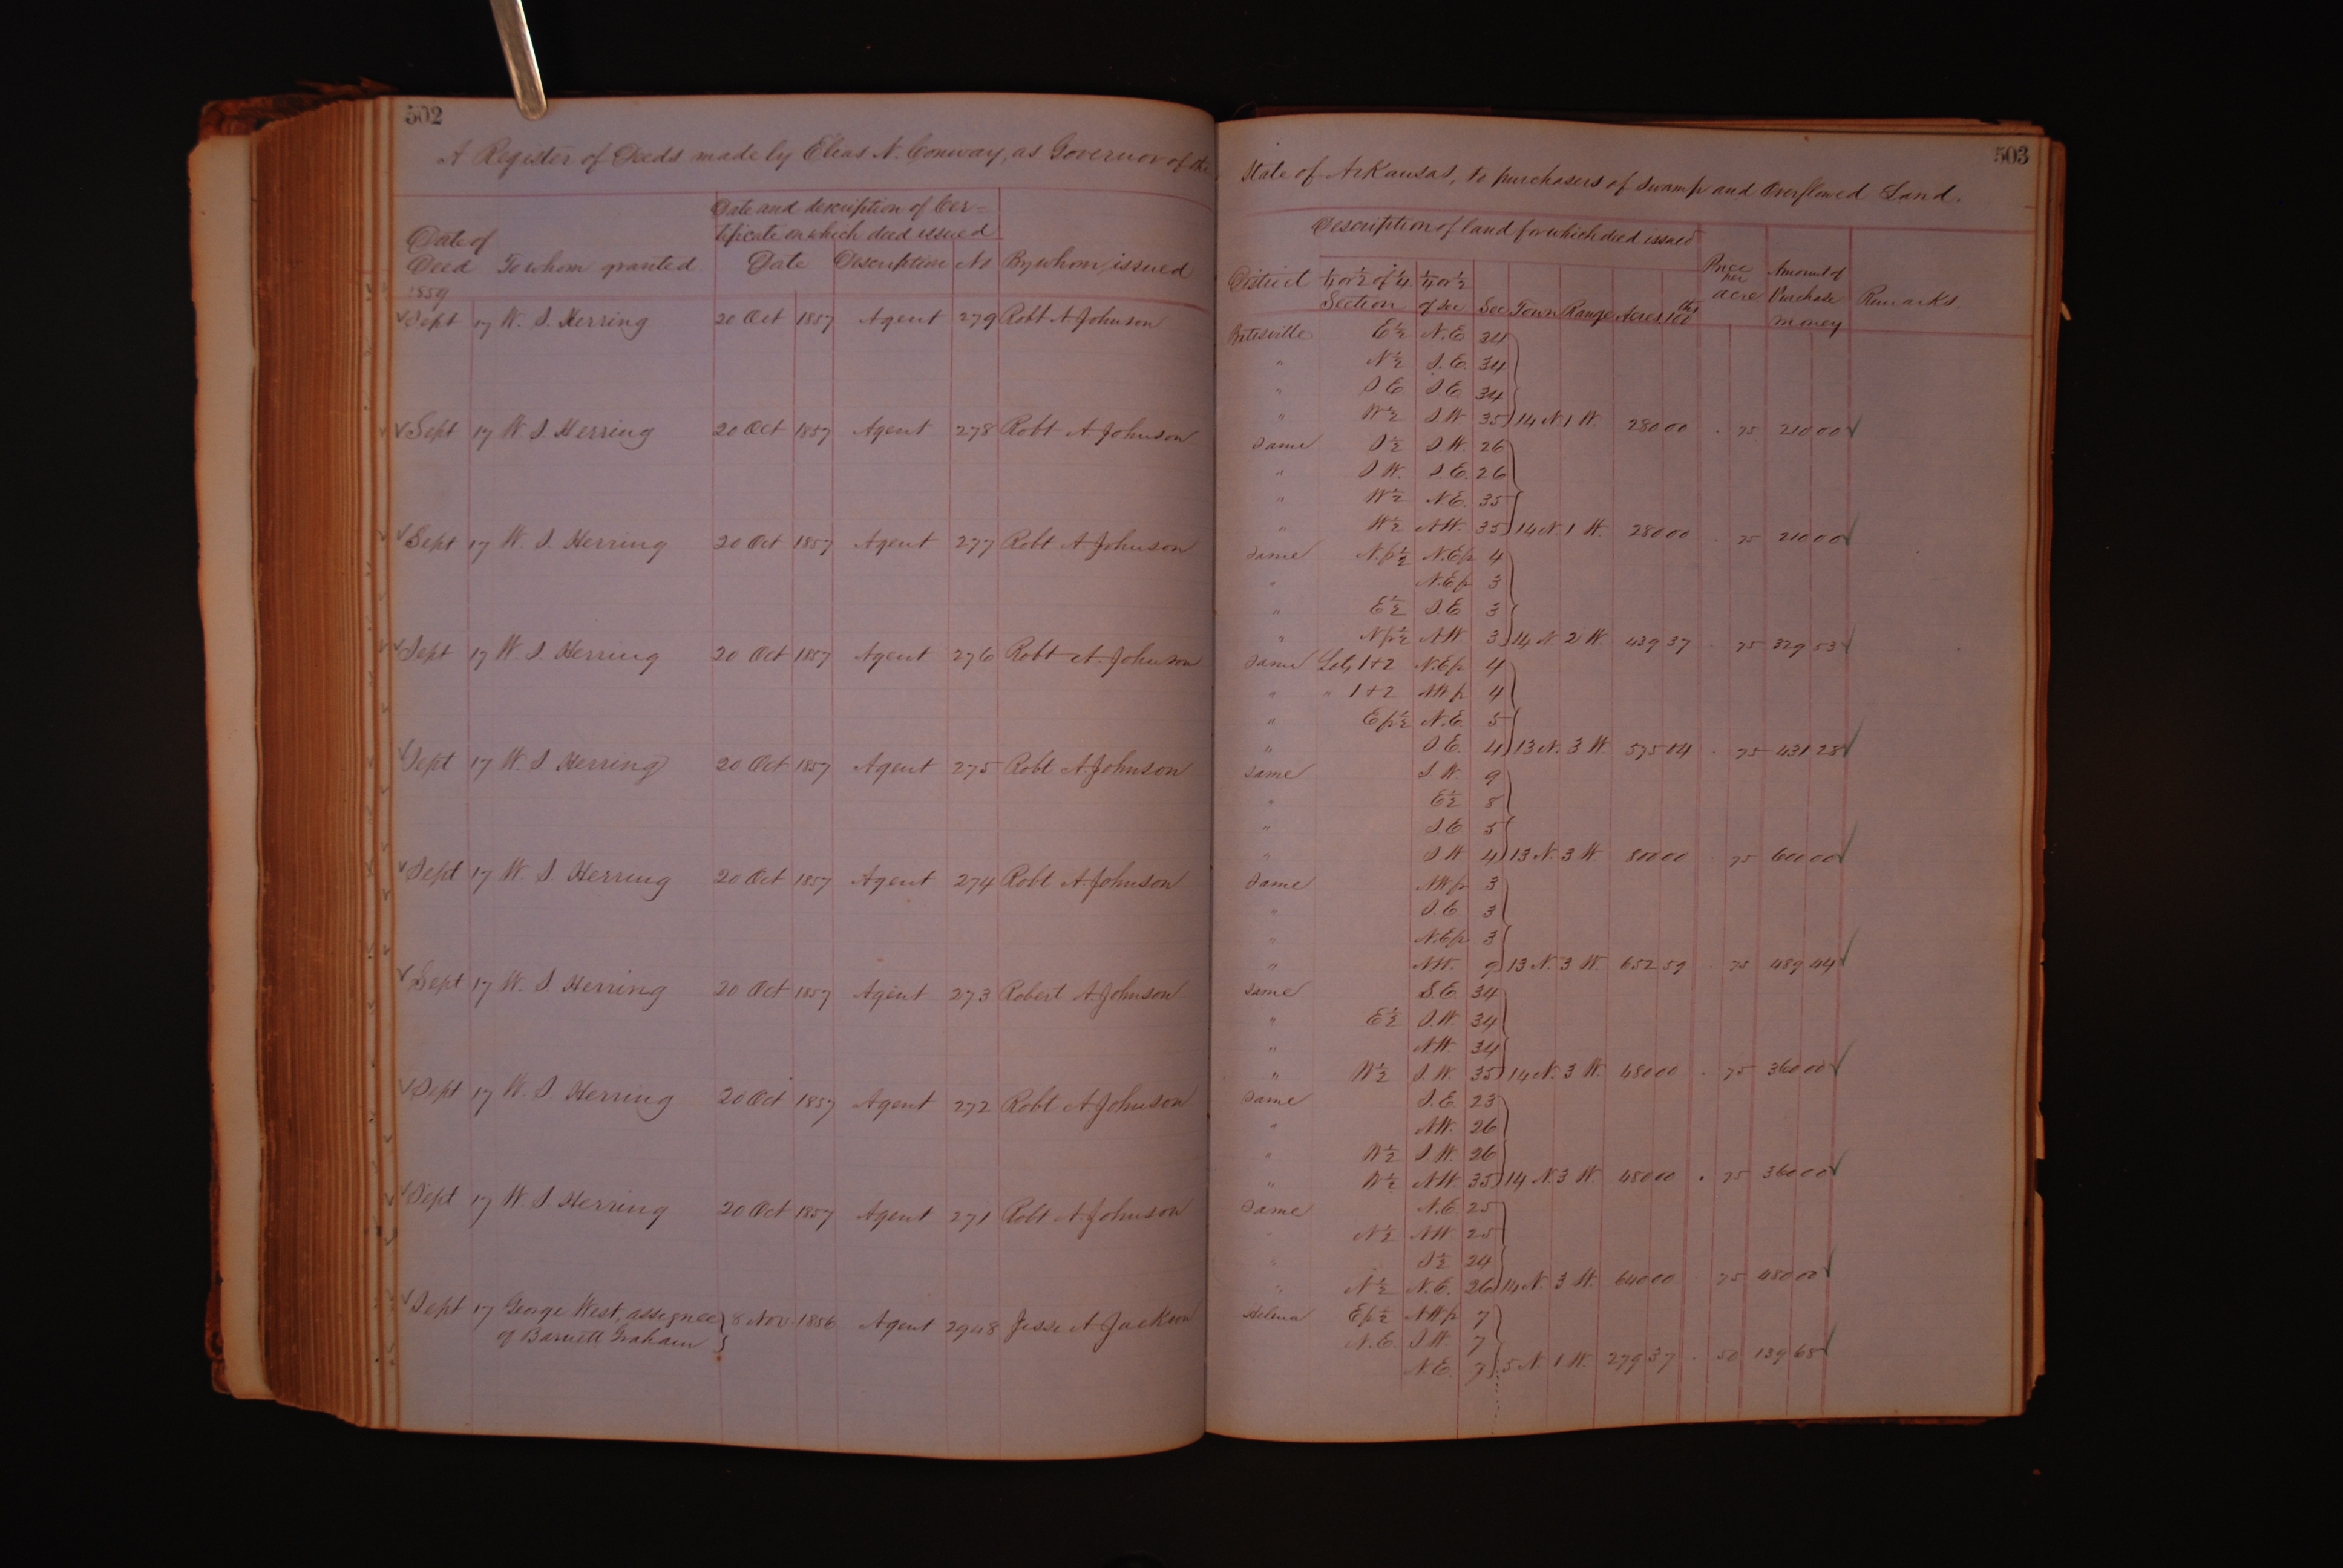 502
A Register of Deeds made by Elias N. Conway, as Governor of the
Date and description of Cer-
tificate on which deed issued
Date of
Deed To whom granted Date Description No By whom issued
1859
Sept 17 W. S. Herring 20 Oct 1857 Agent 279 Robt A. Johnson
Sept 17 W. S. Herring 20 Oct 1857 Agent 278 Robt A. Johnson
Sept 17 W. S. Herring 20 Oct 1857 Agent 277 Robt A. Johnson
Sept 17 W. S. Herring 20 Oct 1857 Agent 276 Robt A. Johnson
Sept 17 W. S. Herring 20 Oct 1857 Agent 275 Robt A. Johnson
Sept 17 W. S. Herring 20 Oct 1857 Agent 274 Robt A. Johnson
Sept 17 W. S. Herring 20 Oct 1857 Agent 273 Robert A. Johnson
Sept 17 W. S. Herring 20 Oct 1857 Agent 272 Robt A. Johnson
Sept 17 W. S. Herring 20 Oct 1857 Agent 271 Robt A. Johnson
Sept 17 George West, assignee 8 Nov. 1856 Agent 2948 Jesse A Jackson
of Barnett Graham
503
State of Arkansas, to purchasers of swamp and Overflowed Land.
Description of land for which deed issued
Price per acre Amount of Purchase money Remarks
District ¼ or ½ of ¼ Section ¼ or ½ of Sec Sec Town Range Acres 100ths
Batesville E½ N.E. 34
" N½ S.E. 34
" S E S E 34
" W½ S W 35 14 N. 1 W. 280 00 . 75 210 00
Same S½ S.W. 26
" S W. S E. 26
" W½ N.E. 35
" W½ N.W. 35 14 N. 1 W. 280 00 . 75 210 00
Same N.p½ N.Ep 4
" N.Ep 3
" E½ S.E 3
" Np½ N.W. 3 14 N. 2 W. 439 37 . 75 329 53
Same Lots 1+2 N.Ep 4
" " 1+2 N.W p 4
" Ep½ N.E. 5
" S E. 4 13 N. 3 W. 575 04 . 75 431 28
Same S W. 9
" E½ 8
" S.E 5
" S W 4 13 N. 3 W. 800 00 . 75 600 00
Same N.W p 3
" S.E 3
" N.Ep 3
" N.W. 9 13 N. 3 W. 652 59 . 75 489 44
Same S.E. 34
" E½ S.W. 34
" N.W. 34
" W½ S.W. 35 14 N. 3 W. 480 00 . 75 360 00
Same S.E. 23
" N.W. 26
" W½ S.W. 26
" W½ N.W. 35 14 N. 3 W. 480 00 . 75 360 00
Same N.E. 25
" N½ N.W 25
" S½ 24
" N½ N.E. 26 14 N. 3 W. 640 00 . 75 480 00
Helena Ep½ N.W p 7
N.E. S.W. 7
N.E. 7 5 N. 1 W. 279 37 . 50 139 68